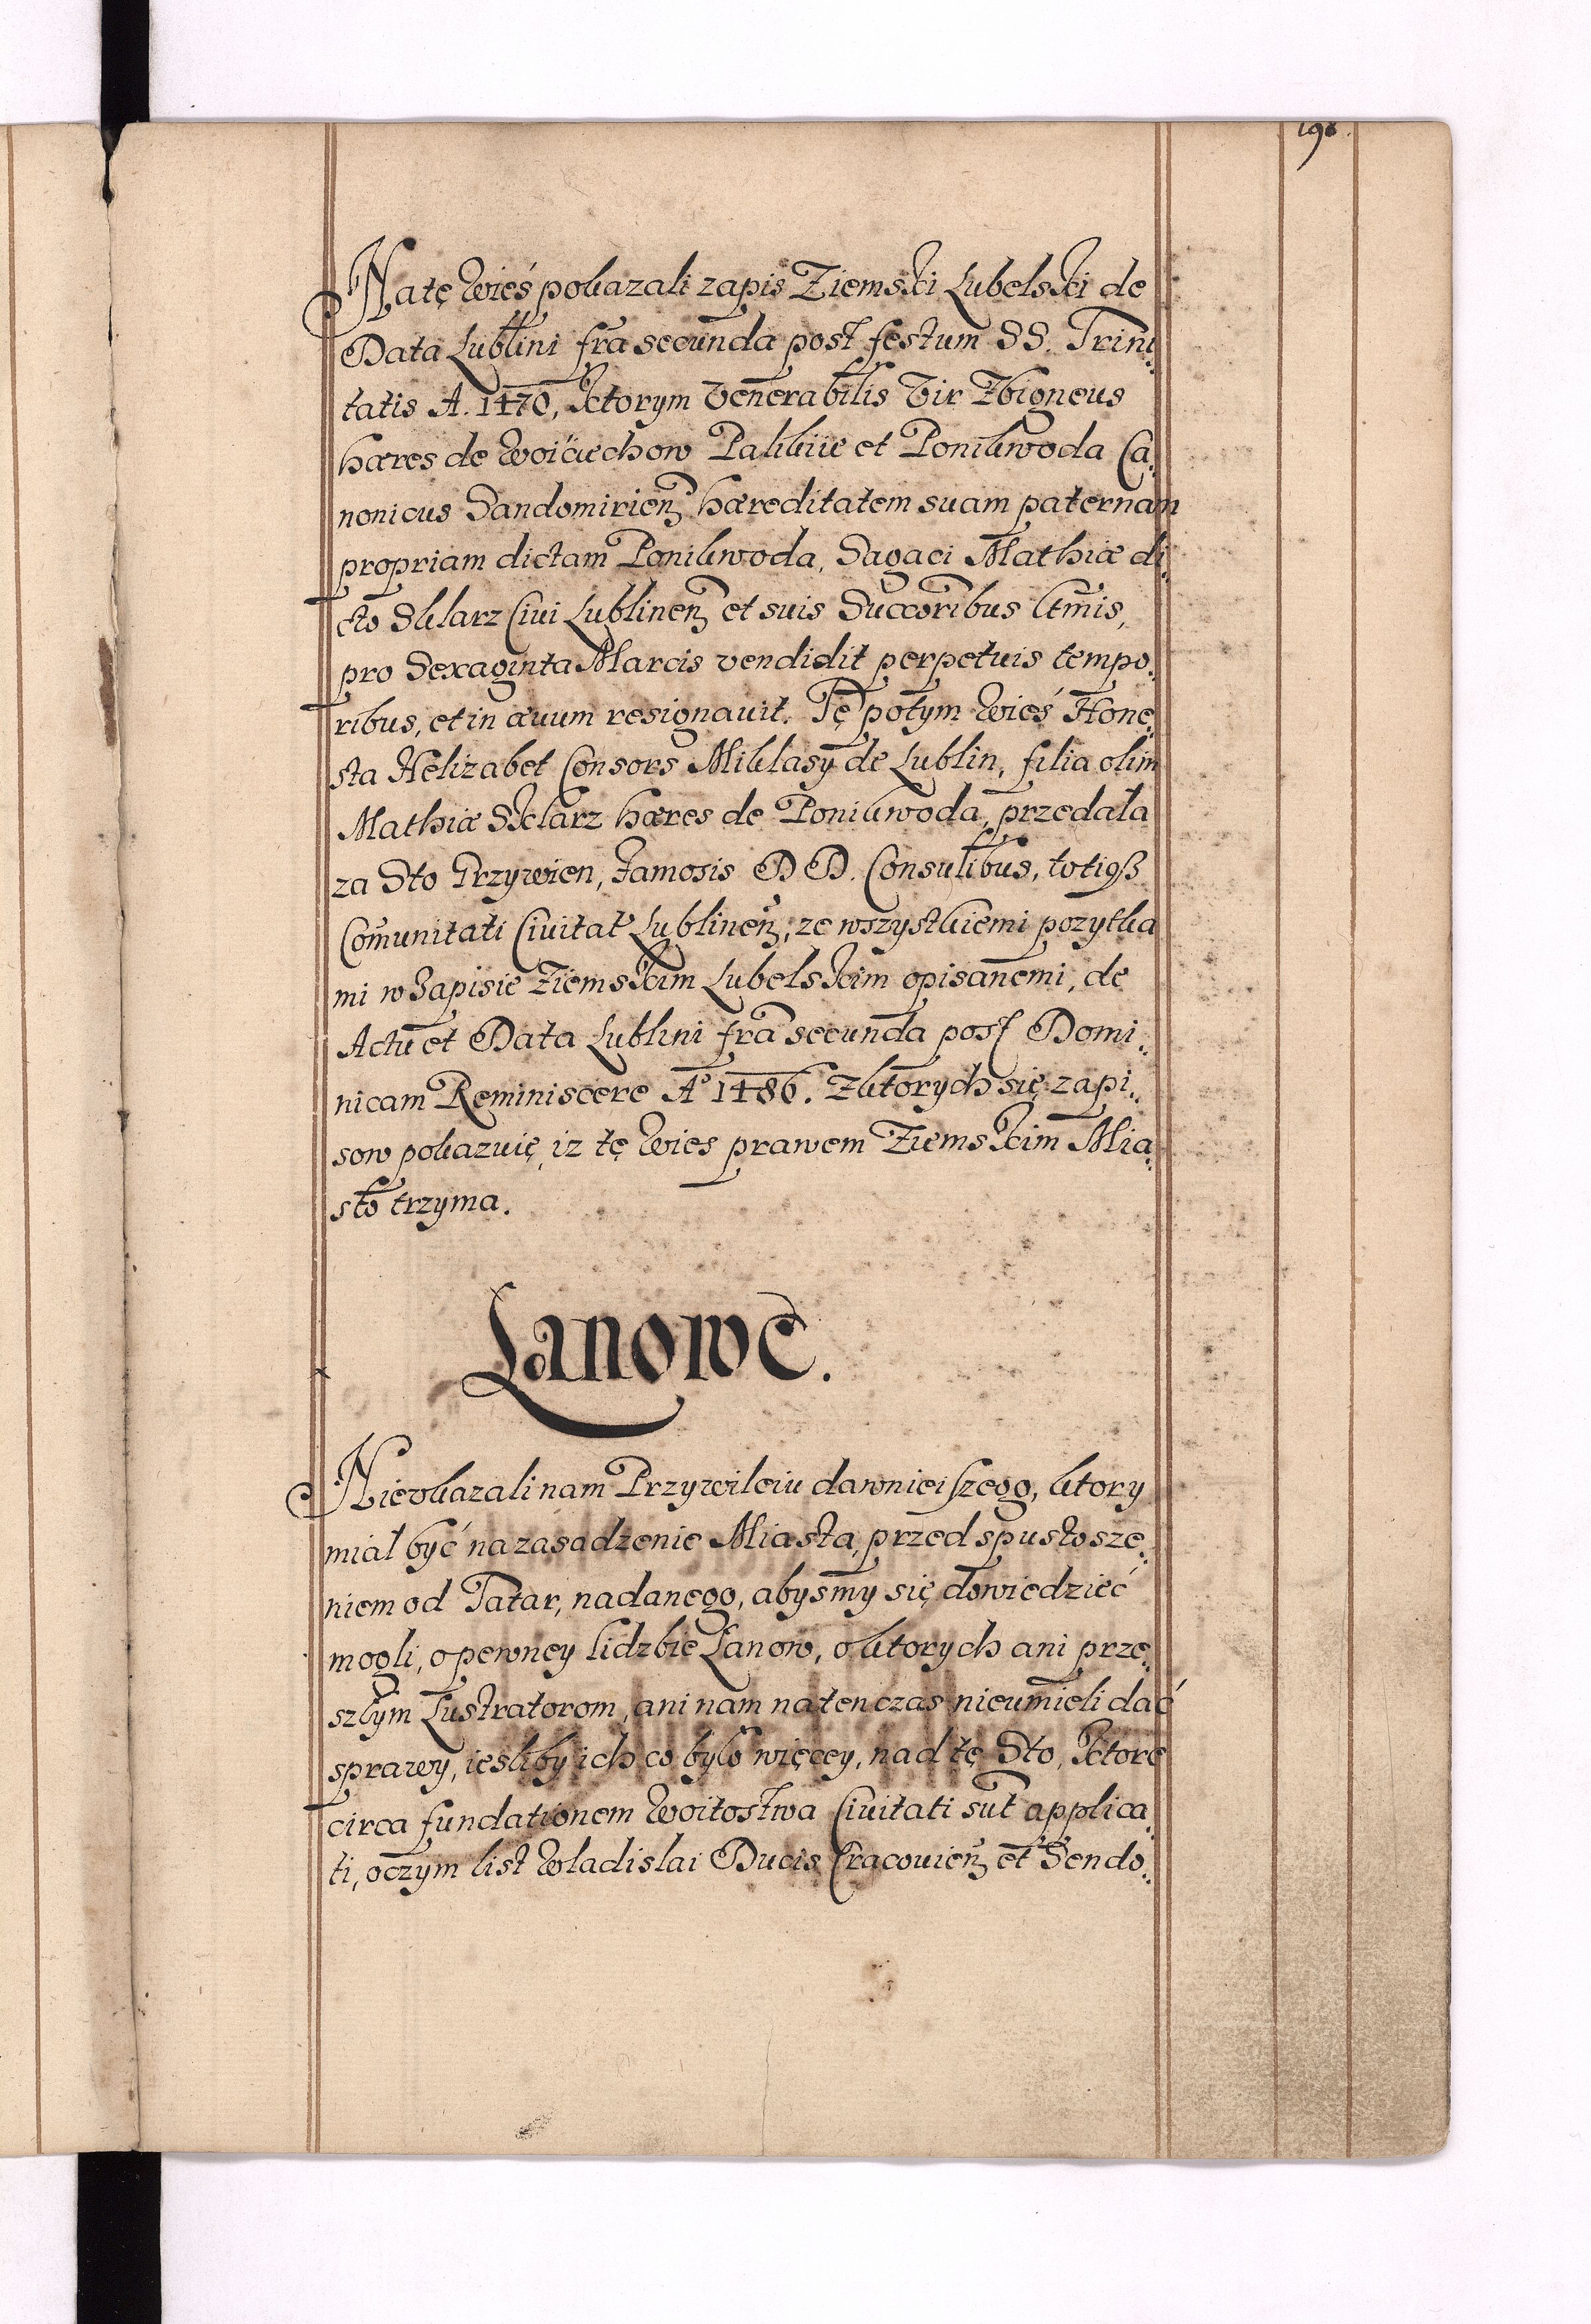 198.
Natę Wieś pokazali zapis Ziemski Lubelski de
Data Lublini fra secunda post festum SS. Trini
tatis A. 1470, Ktorym Venerabilis Vir Zbigneus
hæres de Woiciechow Palikiie et Ponikwoda Ca
nonicus Sandomirien hæreditatem suam paternam
propriam dictam Ponikwoda, Sagaci Mathiæ di
cto Sklarz Civi Lublinen et suis Succoribus ltmis,
pro Sexaginta Marcis vendidit perpetuis tempo
ribus, et in ævum resignavit. Tę potym Wieś Hone
sta Helizabet Consors Miklasy de Lublin, filia olim
Mathiæ Sklarz hæres de Ponikwoda, przedała
za Sto Grzywien, Famosis DD. Consulibus, totiqß
Comunitati Civitat Lublinen, ze wszystkiemi pozytka
mi w Zapisie Ziemskim Lubelskim opisanemi, de
Actu et Data Lublini fra secunda post Domi
nicam Reminiscere A° 1486. Zktorych się zapi
sow pokazuię, iz tę Wies prawem Ziemskim Mia
sto trzyma.
Lanowe.
Nieukazali nam Przywileiu dawnieiszego, ktory
mial być na zasadzenie Miasta, przed spustosze
niem od Tatar, nadanego, abysmy się dowiedzieć
mogli, o pewney lidzbie Łanow, o ktorych ani prze
szlym Lustratorom, ani nam na ten czas nieumieli dać
sprawy, iesliby ich co bylo więcey, nad tę Sto, Ktore
circa fundationem Woitostwa Civitati sut applica
ti, oczym list Wladislai Ducis Cracovien et Sendo